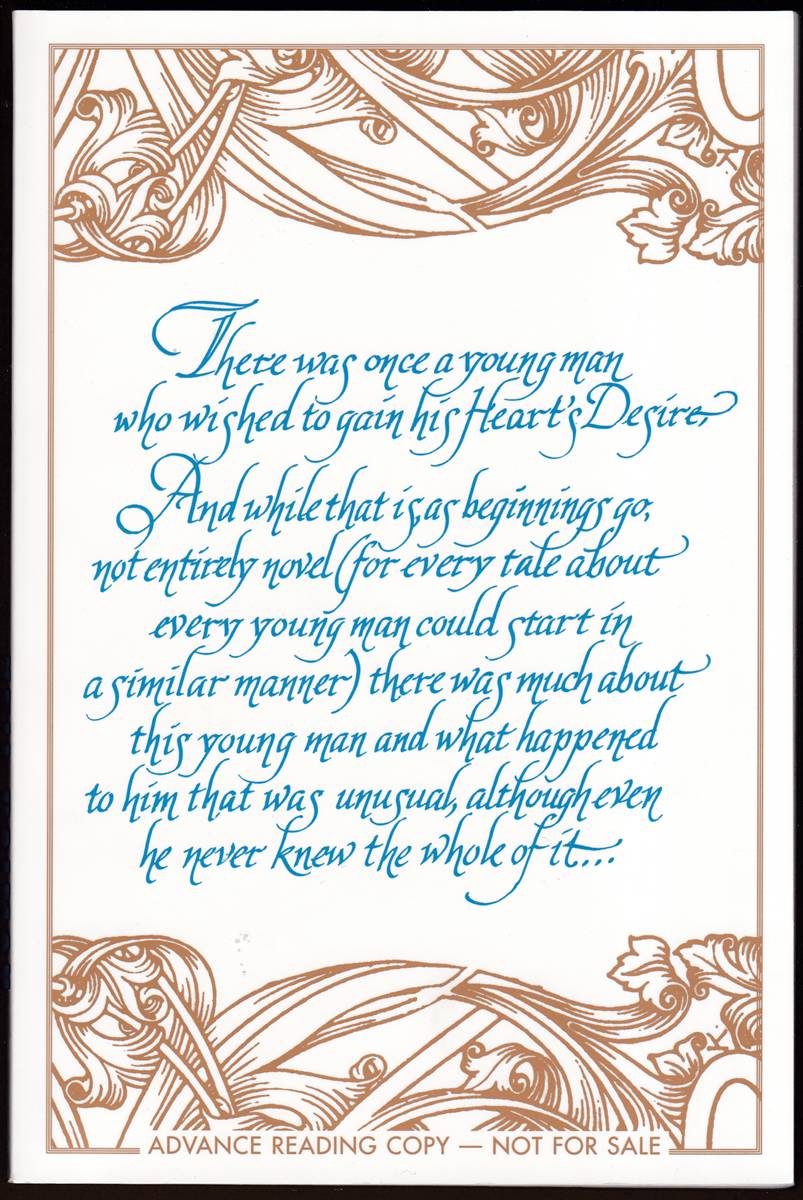 There was once a young man
who wished to gain his Heart's Desire.
And while that is, as beginnings go,
not entirely novel (for every tale about
every young man could start in
a similar manner) there was much about
this young man and what happened
to him that was unusual, although even
he never knew the whole of it...
ADVANCE READING COPY — NOT FOR SALE